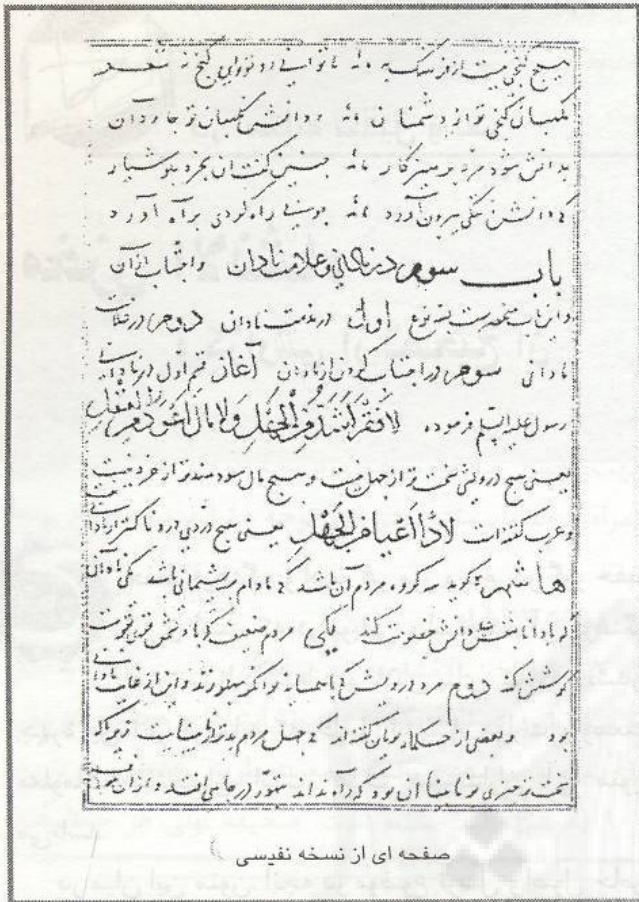 هیچ گنجی نیست از فرهنگ به نه تا توانی رو تو وی گنج نه
نگهبان گنجی تو از دشمنان و دانش نگهبان تو جاودان
بدانش شود مرد پرهیزکار چنین گفت آن بخرد هوشیار
که دانش ز تنگی بیرون آورد چو بی راه کردی براه آورد
باب سوم در نادانی و علامت نادان و اجتناب از آن
و این باب منحصرست بسه نوع اول در مذمت نادان دوم در علامت
نادانی سوم در اجتناب کردن از نادان آغاز قسم اول در نادانی
رسول علیه السلام فرموده لا فَقْرَ اَشَدُّ مِنَ الْجَهْلِ وَلا مالَ اَعْوَدُ مِنَ الْعَقْلِ
یعنی هیچ درویشی سخت تر از جهل نیست و هیچ مال سودمندتر از خرد نیست
و عرب گفته است لاداءَ اَعْیا مِنَ الْجَهْلِ یعنی هیچ دردی دردناکتر از نادانی
گوید سه گروه مردم آن باشد که مادام پشیمانی باشد یکی نادان
که با دانا خصومت کند یکی مردم ضعیف که با دشمن قوی
کوشش کند دوم مرد درویش که با همسایه توانگر پهلو زند و این از غایت نادانی
بود و بعضی از حکماء یونان گفته‌اند که جهل مردم بدتر از نابیناییست زیرا که
سخت‌تر چیزی بر نابینا آن بود که راه نداند در چاهی افتد و از آن
صفحه ای از نسخه نفیسی